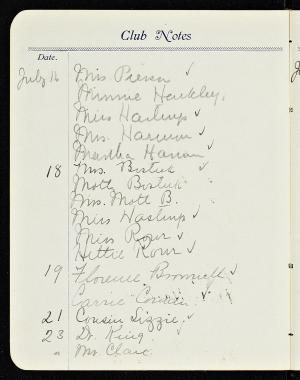 Club Notes
Date.
July 16 Mrs Pierson ✓
Minnie Hinkley,
Miss Hastings ✓
Mrs. Harmon ✓
Martha Harmon ✓
18 Mrs. Bostick ✓
Mott Bostick "
Mrs. Mott B. "
Miss Hastings ✓
Miss Rowr ✓
Hittie Rowr ✓
19 Florence ✓
Carrie ✓
21 Cousin Lizzie. ✓
23 Dr. King. ✓
" Mrs.